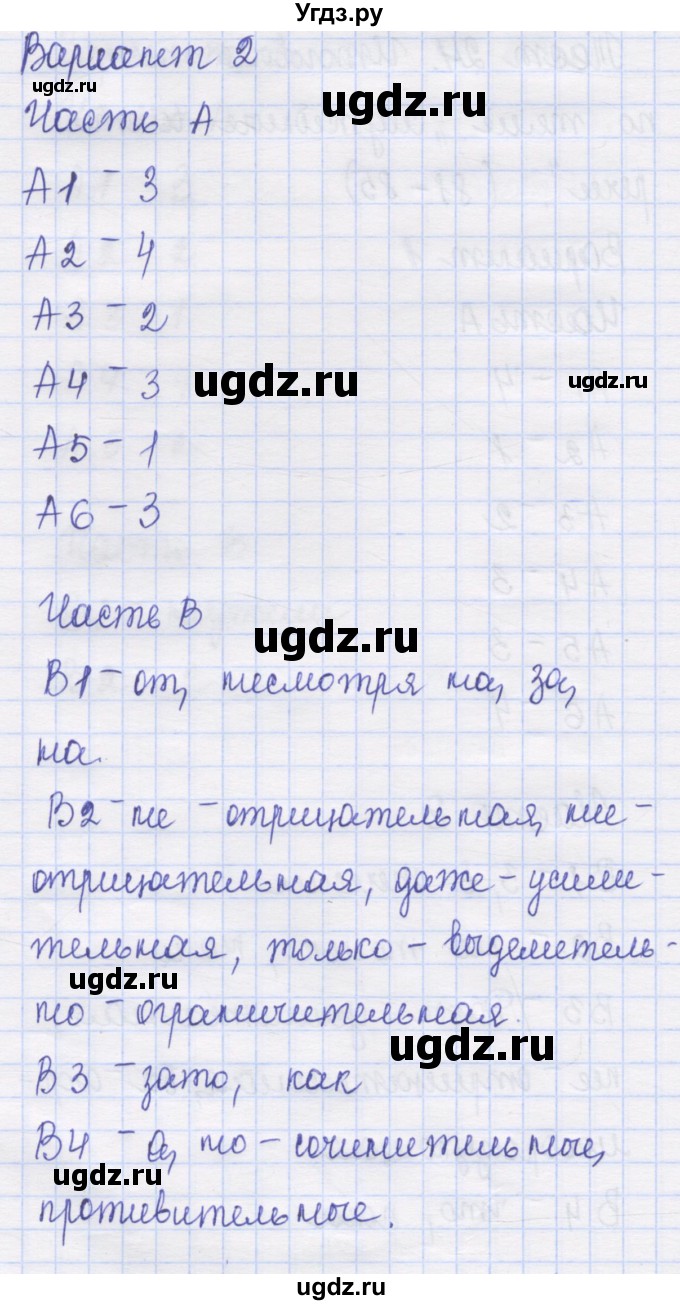 Угдз.ру
Вариант 2
ugdz.ru
Часть А
А1 - 3
А2 - 4
А3 - 2
А4 - 3
ugdz.ru
ugdz.ru
А5 - 1
А6 - 3
Часть В
ugdz.ru
В1 - от, несмотря на, за,
на.
В2 - не - отрицательная, ни -
отрицательная, даже - усили -
тельная, только - выделитель -
ugdz.ru
но - ограничительная.
ugdz.ru
В3 - зато, как
В4 - а, но - сочинительные,
ugdz.ru
противительные.
ugdz.ru